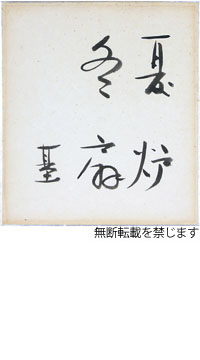 夏炉
冬扇
基
無断転載を禁じます